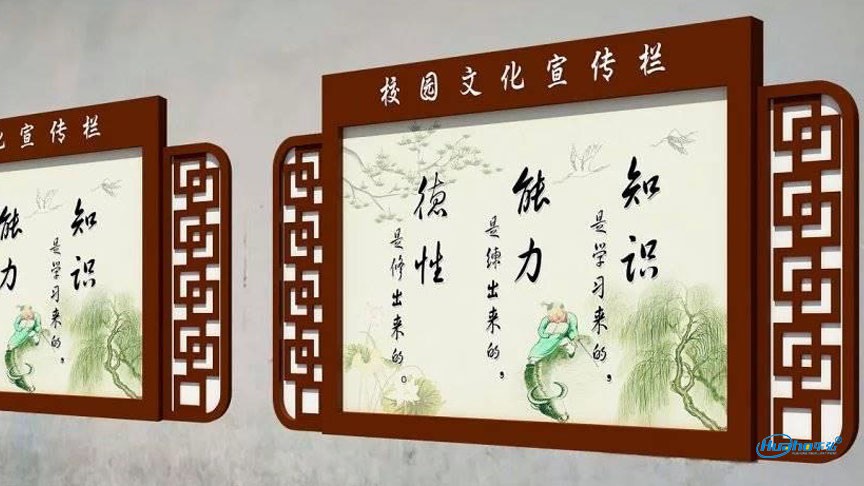 化宣传栏
知识
是学习来的，
能力
校园文化宣传栏
知识
是学习来的，
能力
是練出来的，
德性
是修出来的。